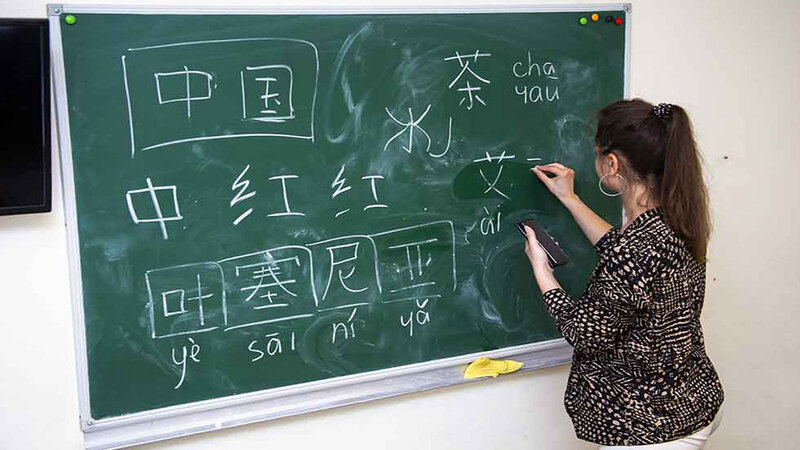 中国
茶 cha
yau
中 红 红
艾
ài
叶塞尼亚
yè sāi ní yǎ